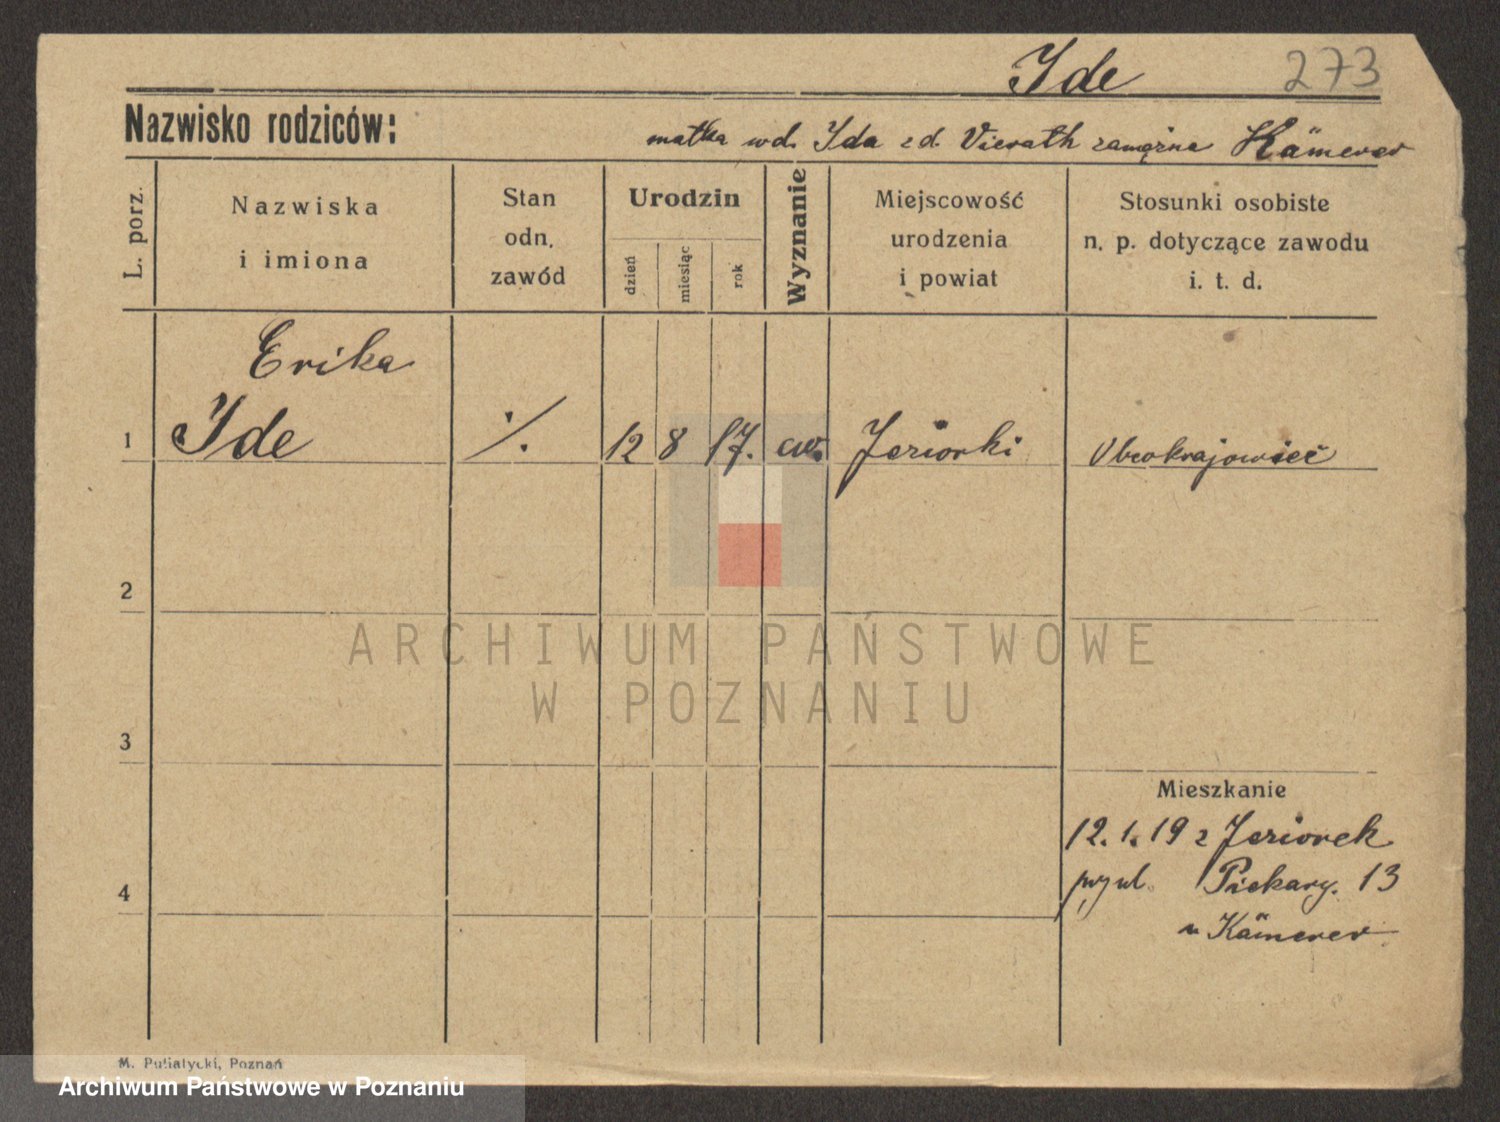 Ide 273
Nazwisko rodziców:
matka wd. Ida zd. Vierath zamężna Kämerer
L. porz.
Nazwiska
i imiona
Stan
odn.
zawód
Urodzin
dzień
miesiąc
rok
Wyznanie
Miejscowość
urodzenia
i powiat
Stosunki osobiste
n. p. dotyczące zawodu
i. t. d.
Erika
1 Ide ./. 12 8 17. ew. Jeziorki Obcokrajowiec
2
3
4
Mieszkanie
12.1.19 z Jeziorek
Piekary. 13
u Kämerer
ARCHIWUM PAŃSTWOWE
W POZNANIU
M. Putiatycki, Poznań
Archiwum Państwowe w Poznaniu